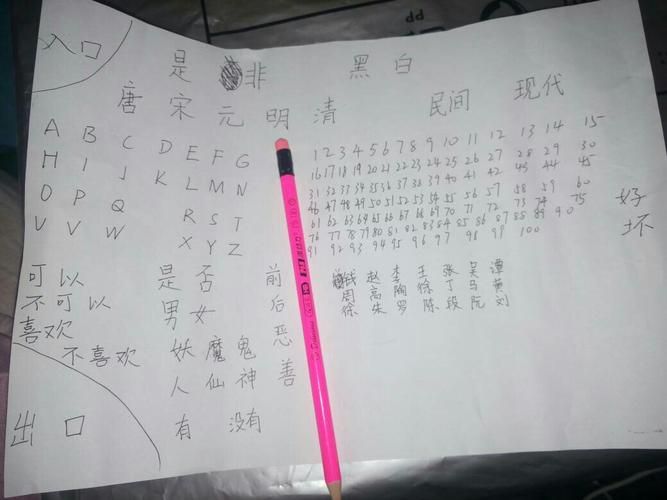 入口
是 非 黑白
唐宋元明清 民间 现代
A B C D E F G
H I J K L M N
O P Q R S T
U V W X Y Z
1 2 3 4 5 6 7 8 9 10 11 12 13 14 15
16 17 18 19 20 21 22 23 24 25 26 27 28 29 30
31 32 33 34 35 36 37 38 39 40 41 42 43 44 45
46 47 48 49 50 51 52 53 54 55 56 57 58 59 60
61 62 63 64 65 66 67 68 69 70 71 72 73 74 75
76 77 78 79 80 81 82 83 84 85 86 87 88 89 90
91 92 93 94 95 96 97 98 99 100
好坏
可以 是否 前
不可以 男女 后
喜欢 恶
不喜欢 妖魔鬼 善
人仙神
出口 有 没有
钱 赵 李 王 张 吴 谭
周 高 陶 徐 丁 马 黄
徐 朱 罗 陈 段 阮 刘
PP